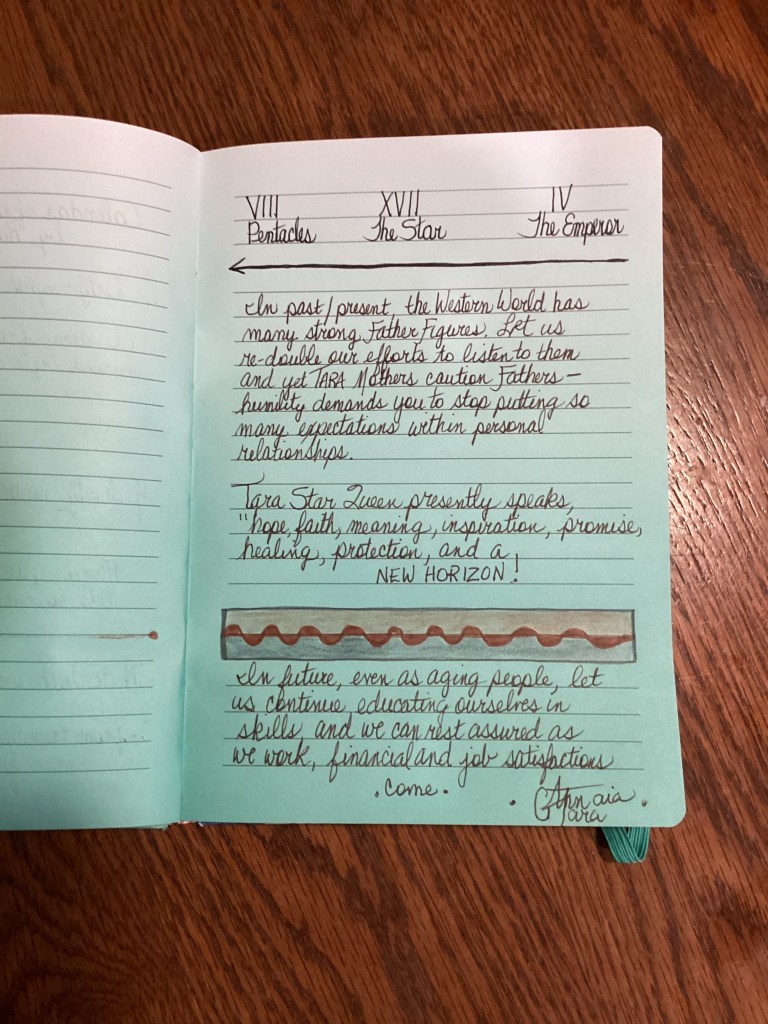 VIII XVII IV
Pentacles The Star The Emperor
In past/present, the Western World has
many strong Father Figures. Let us
re-double our efforts to listen to them
and yet TARA Mothers caution Fathers —
humility demands you to stop putting so
many expectations within personal
relationships.
Tara Star Queen presently speaks,
"hope, faith, meaning, inspiration, promise,
healing, protection, and a
NEW HORIZON!
In future, even as aging people, let
us continue educating ourselves in
skills, and we can rest assured as
we work, financial and job satisfactions
. come .
Tara